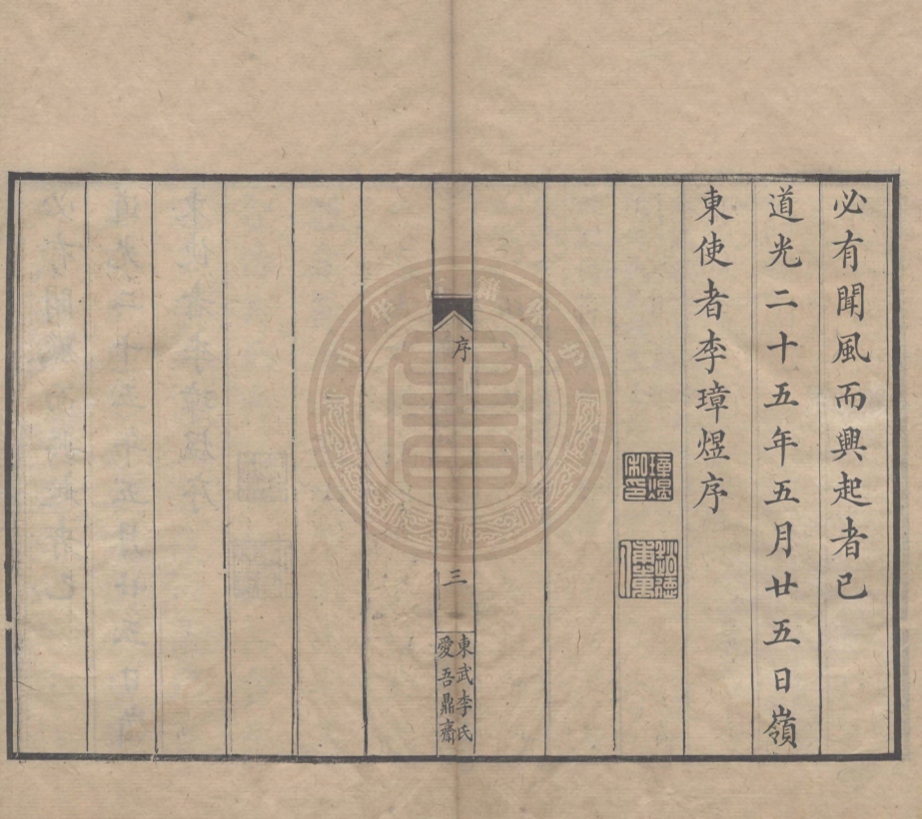 必有聞風而興起者已
道光二十五年五月廿五日嶺
東使者李璋煜序
璋煜
私印
序
三
東武李氏
愛吾鼎齋